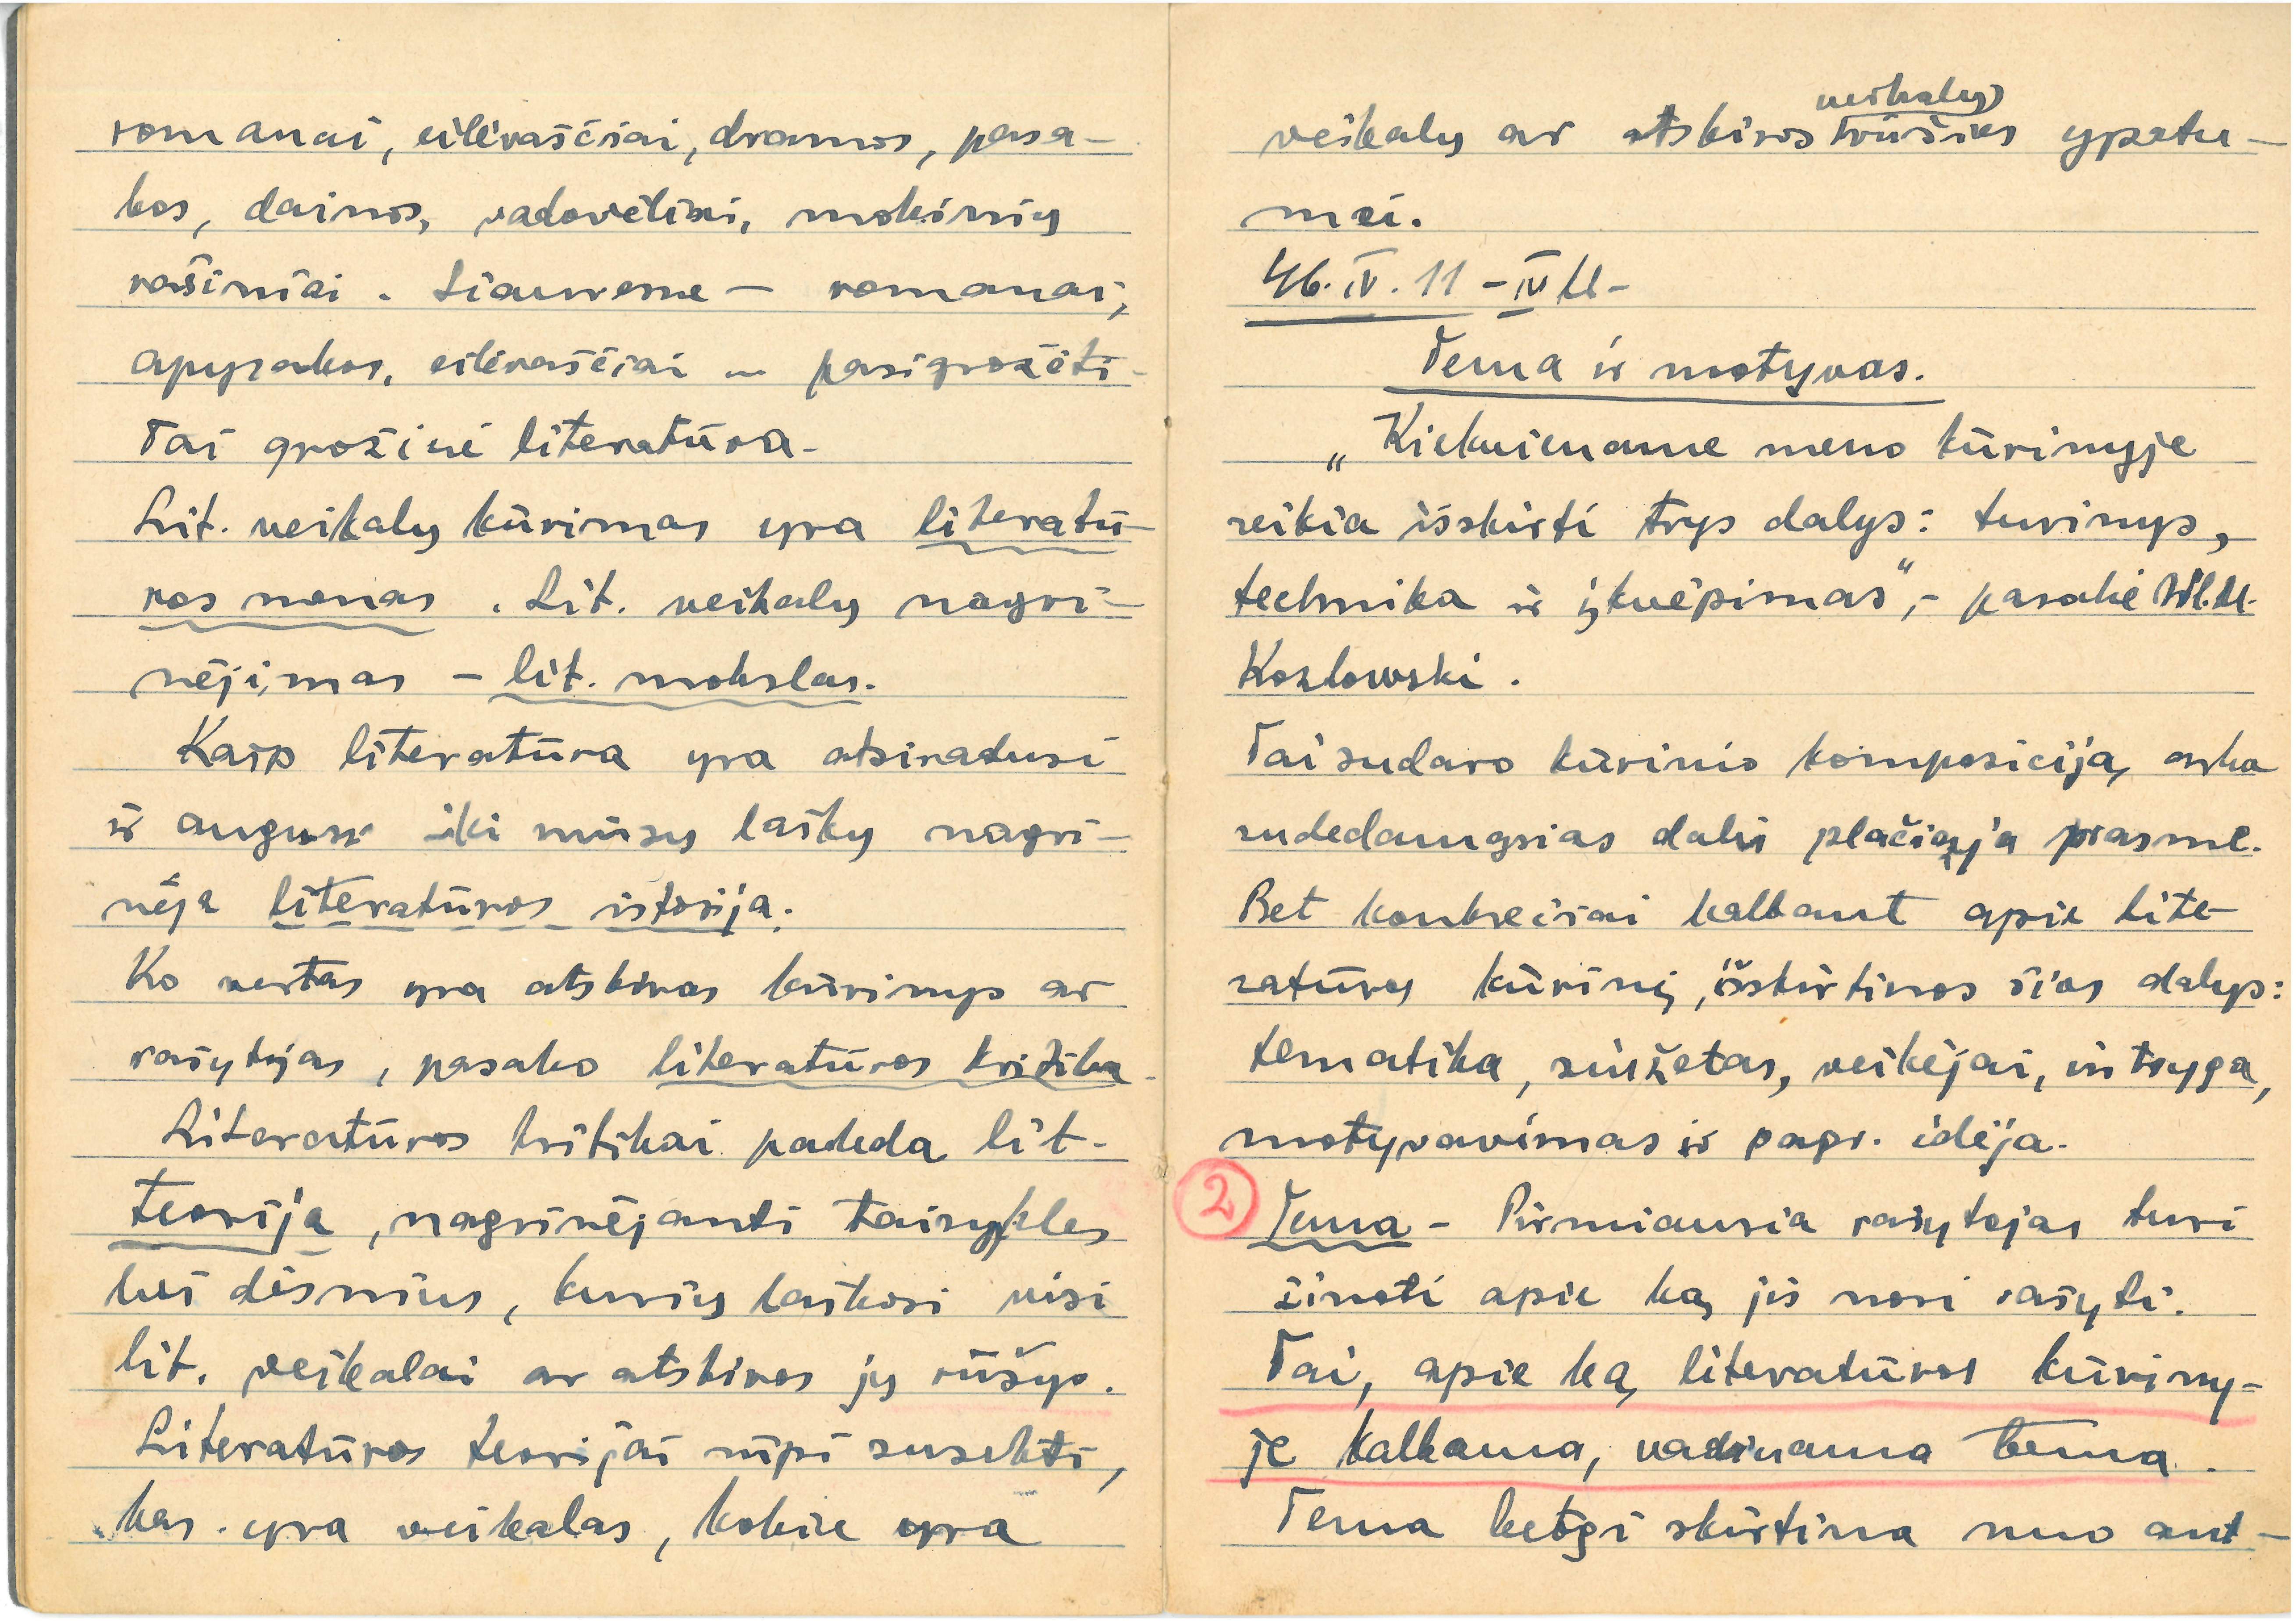 romanai, eilėraščiai, dramos, pasa-
kos, dainos, vadovėliai, mokinių
rašiniai. Siauresne — romanai,
apysakos, eilėraščiai — pasigrožėti.
Tai grožinė literatūra.
Lit. veikalų kūrimas yra literatū-
ros menas. Lit. veikalų nagri-
nėjimas - lit. mokslas.
Kaip literatūra yra atsiradusi
ir augusi iki mūsų laikų nagri-
nėja literatūros istorija.
Ko vertas yra atskiras kūrinys ar
rašytojas, pasako literatūros kritika.
Literatūros kritikai padeda lit.
teorija, nagrinėjanti taisykles
bei dėsnius, kurių laikosi visi
lit. veikalai ar atskiros jų rūšys.
Literatūros teorijai rūpi susekti,
kas yra veikalas, kokie yra
veikalų
veikalų ar atskiros rūšies ypatu-
mai.
46.IV.11 - IV kl-
Tema ir motyvas.
„Kiekviename meno kūrinyje
reikia išskirti trys dalys: turinys,
technika ir įkvėpimas", - pasakė Wl. M.
Kozlowski.
Tai sudaro kūrinio kompoziciją, arba
sudedamąsias dalis plačiąja prasme.
Bet konkrečiai kalbant apie lite-
ratūros kūrinį, išskirtinos šios dalys:
tematika, siužetas, veikėjai, intryga,
motyvavimas ir pagr. idėja.
2 Tema - Pirmiausia rašytojas turi
žinoti apie ką jis nori rašyti.
Tai, apie ką literatūros kūriny-
je kalbama, vadinama tema.
Tema betgi skirtina nuo ant-